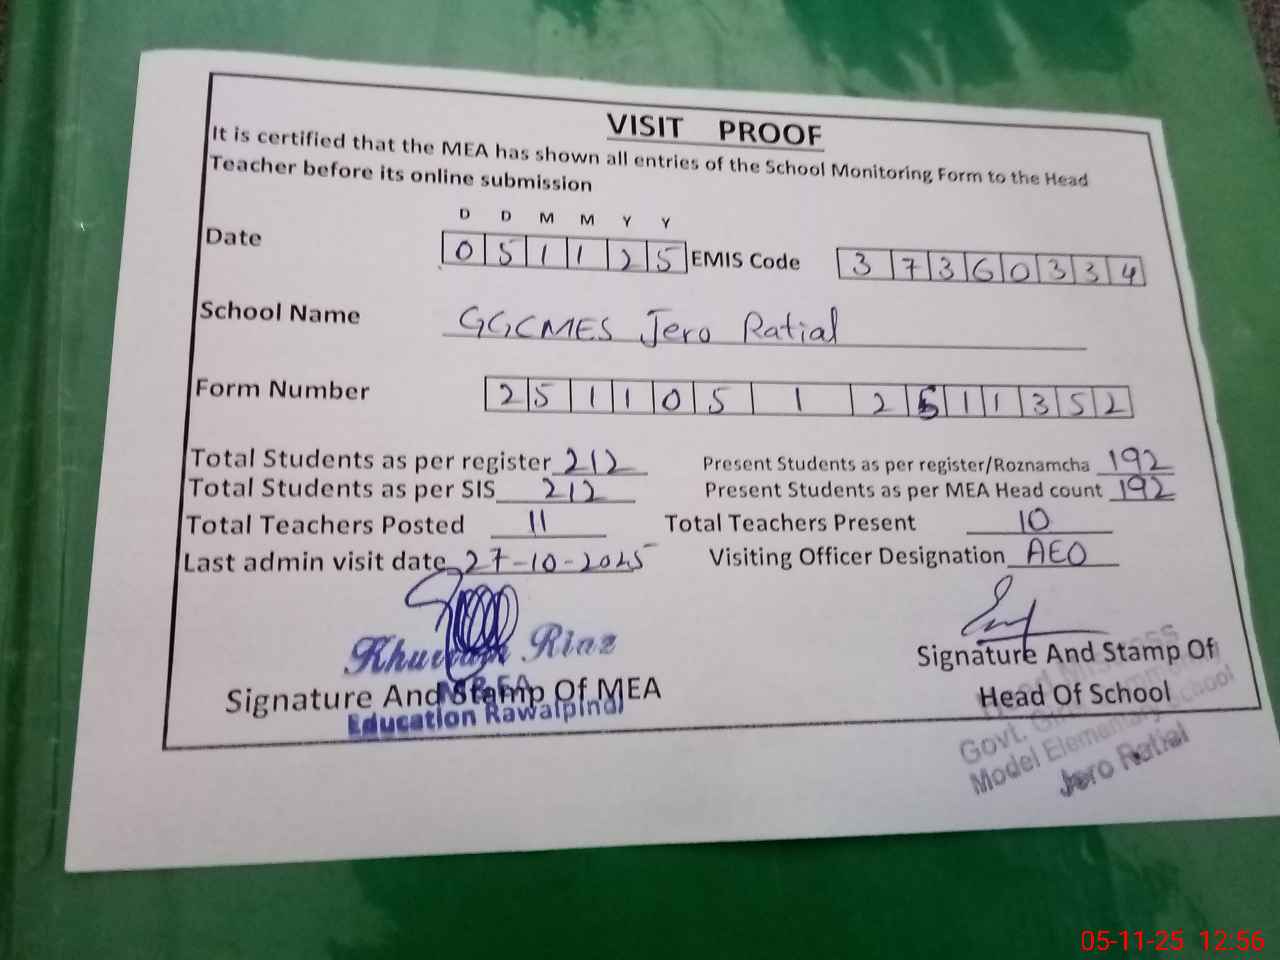 VISIT PROOF
It is certified that the MEA has shown all entries of the School Monitoring Form to the Head
Teacher before its online submission
D D M M Y Y
Date 0 5 1 1 2 5 EMIS Code 3 7 3 6 0 3 3 4
School Name GGCMES Jero Ratial
Form Number 2 5 1 1 0 5 1 2 5 1 1 3 5 2
Total Students as per register 212 Present Students as per register/Roznamcha 192
Total Students as per SIS 212 Present Students as per MEA Head count 192
Total Teachers Posted 11 Total Teachers Present 10
Last admin visit date 27-10-2025 Visiting Officer Designation AEO
Khurram Riaz
Signature And Stamp Of MEA
Education Rawalpindi
Signature And Stamp Of
Head Of School
Govt.
Model Elementary School
Jero Ratial
05-11-25 12:56